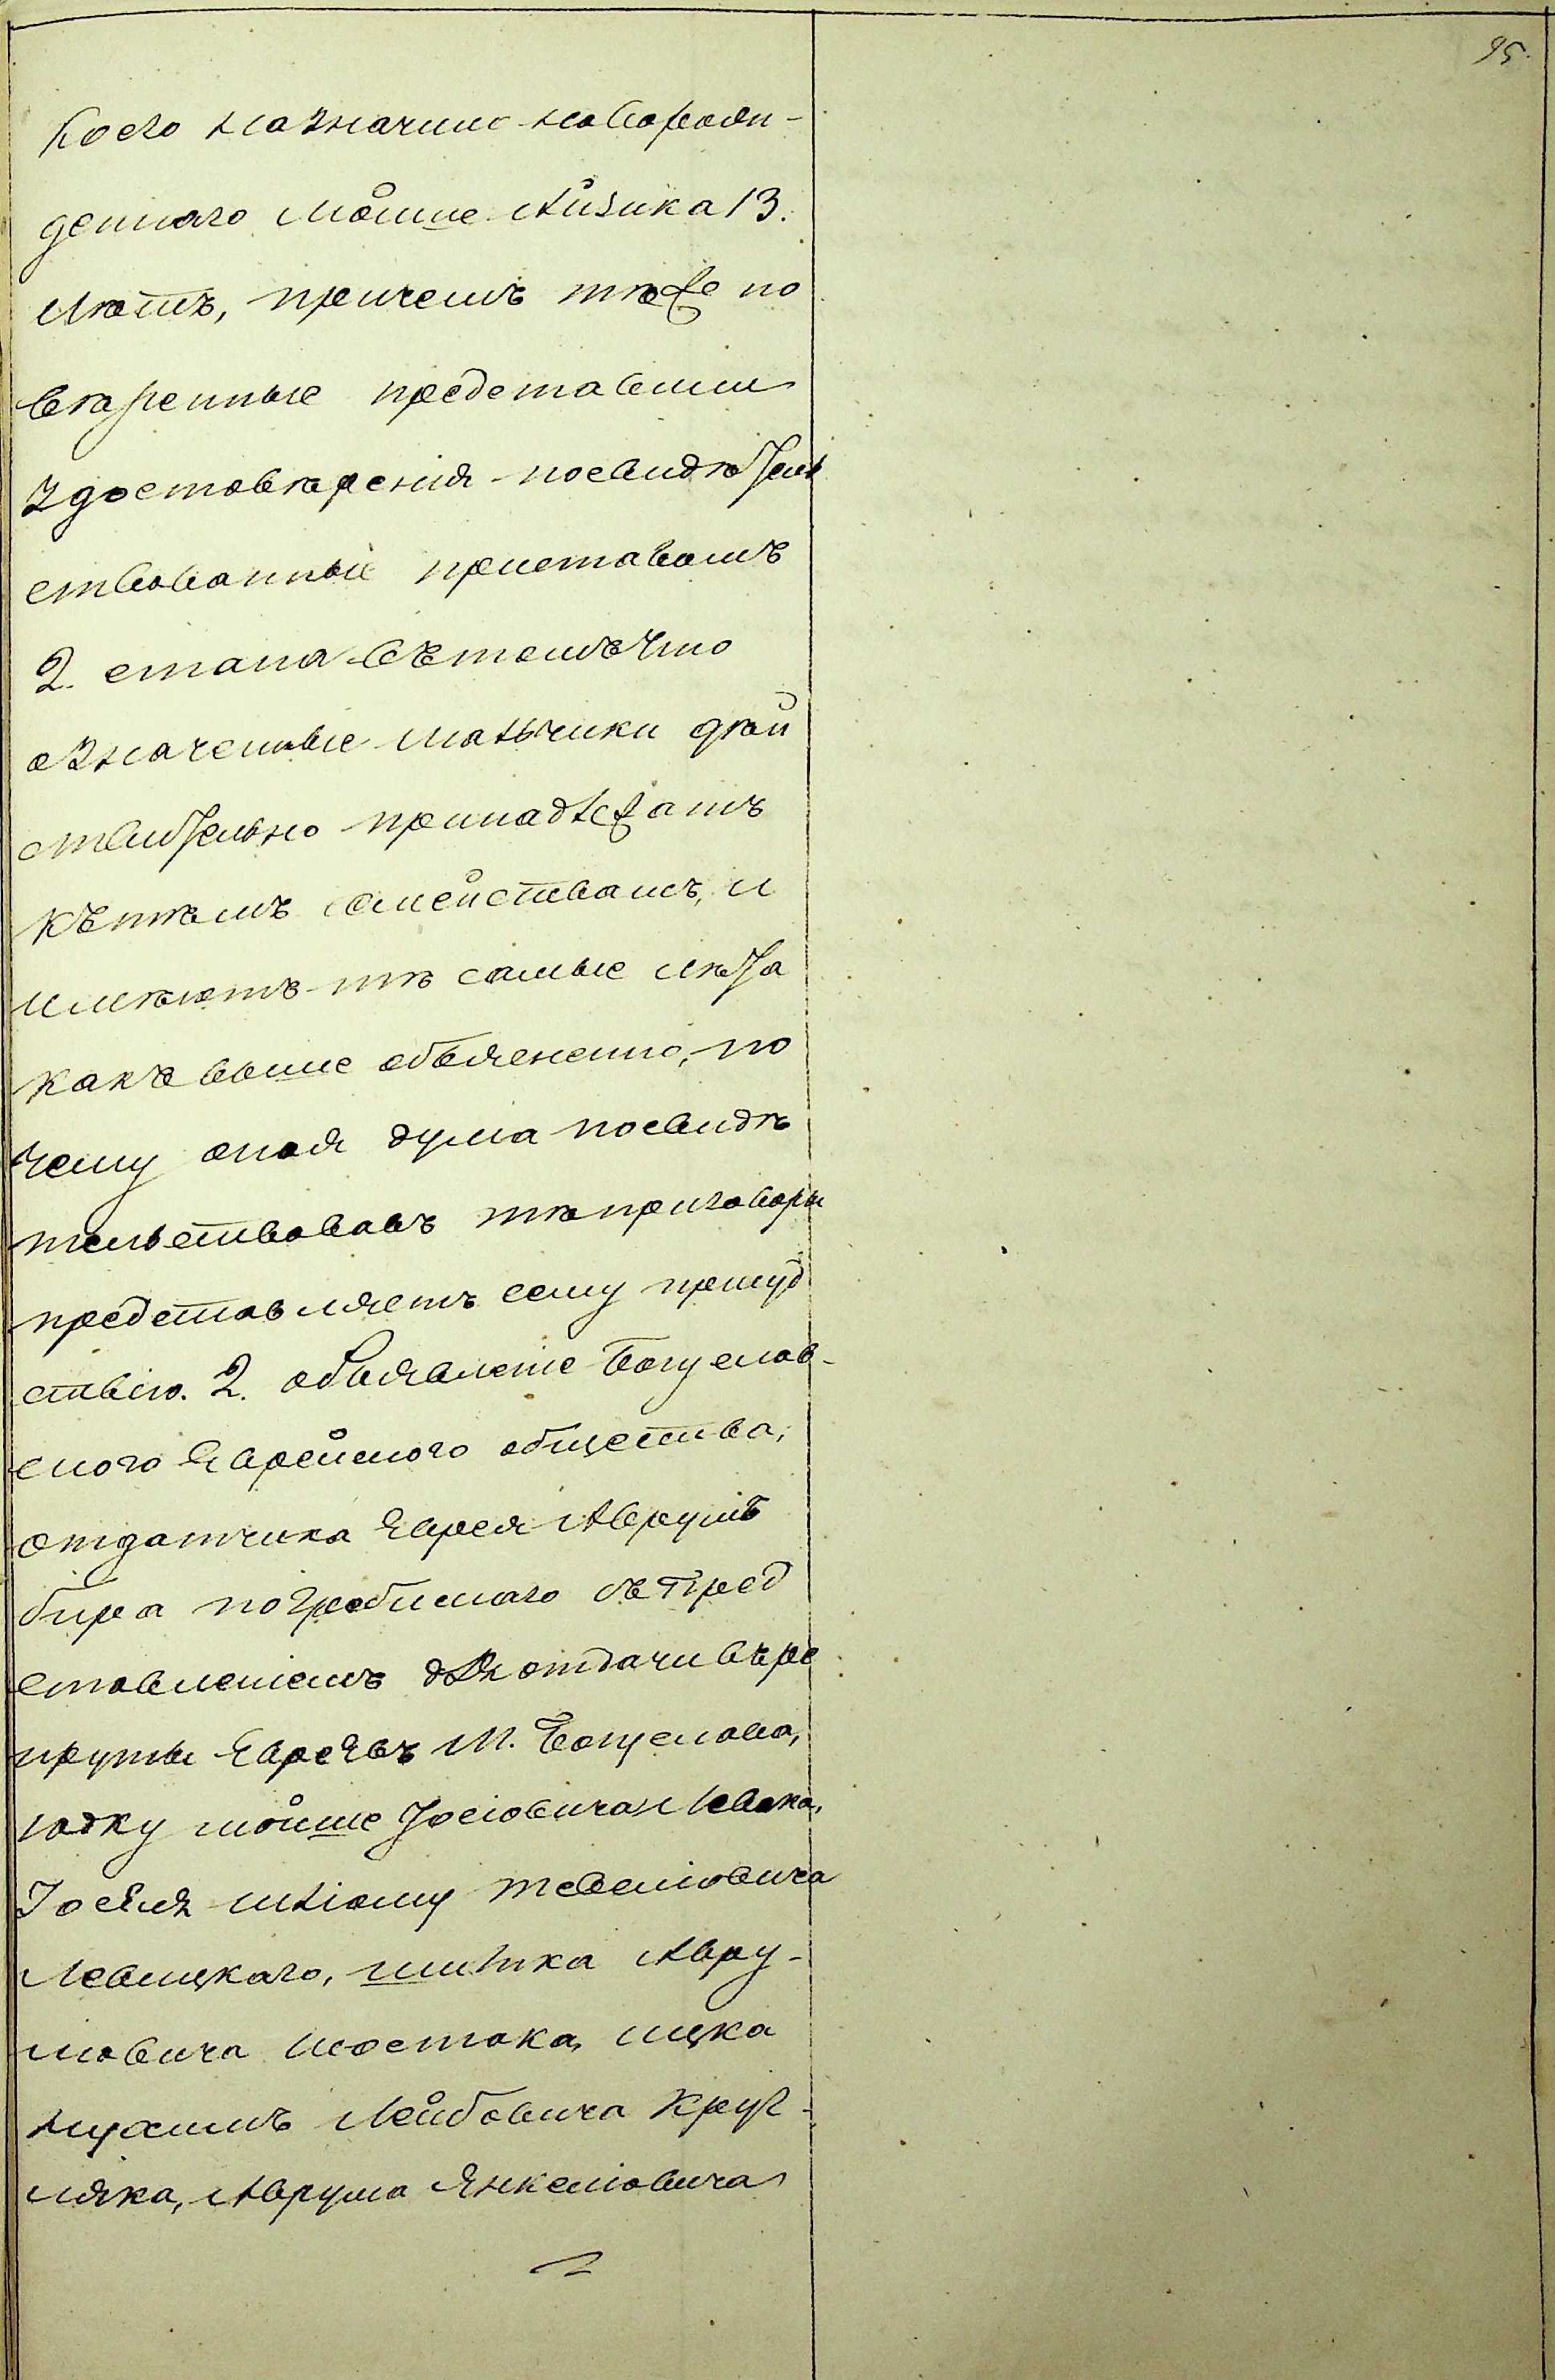 95.
коего назначило новорожи-
деннаго Мойше Айзика 13.
лѣтъ, причемъ тѣже по
вѣренные представили
удостовѣренія посвидѣтель
ствованныи приставомъ
2. стана вътомъ что
означенные мальчики дѣй
ствительно принадлежатъ
къ тѣмъ семействамъ, и
имѣютъ тѣ самые лѣта
какъ выше объяснено, по
чему оная дума посвидѣ
тельствовавъ тѣ приговоры
представляетъ сему присуд
ствію. 2. объявленіе Богуслав-
скаго Еврейскаго общества,
отдатчика Еврея Аврумъ
бира погребискаго съ пред
ставленіемъ для отдачи въ ре
круты Евреевъ М. Богуслава,
Юдку мойше Іосіовича Левака,
Іосѣля шліому Тевеліовича
Левицкаго, Авру-
мовича шостака, ицка
нухимъ Лейбовича Круг-
ляка, Аврума Янкеліовича